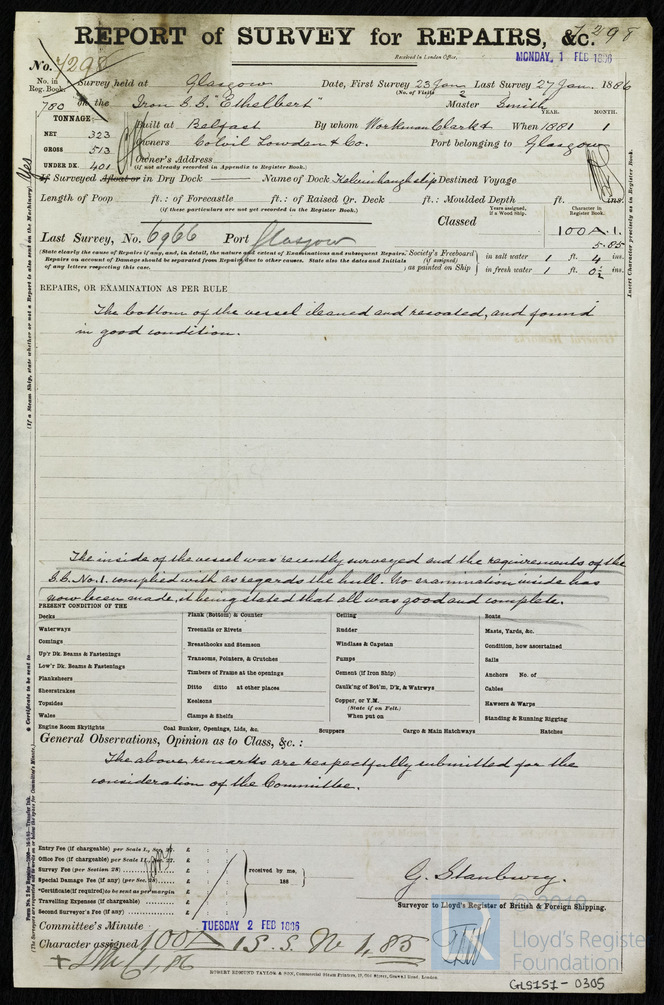 7298
REPORT of SURVEY for REPAIRS, &c.
Received in London Office, MONDAY, 1 FEB 1886
No. 7298
No. in Reg. Book. Survey held at Glasgow Date, First Survey 23 Jan Last Survey 27 Jan. 1886
(No. of Visits 2
700 on the Iron S.S. "Ethelbert" Master Smith
TONNAGE: YEAR. MONTH.
NET 323 Built at Belfast By whom Workman Clark & When 1881 1
GROSS 513 Owners Colvil Lowden & Co. Port belonging to Glasgow
UNDER DK. 401 Owner's Address
(if not already recorded in Appendix to Register Book.)
If Surveyed Afloat or in Dry Dock Name of Dock Kelvinhaugh slip Destined Voyage
Length of Poop ft.: of Forecastle ft.: of Raised Qr. Deck ft.: Moulded Depth ft. ins.
(if these particulars are not yet recorded in the Register Book.)
Classed Years assigned, if a Wood Ship. Character in Register Book.
100 A.1.
5.85
Last Survey, No. 6966 Port Glasgow
(State clearly the cause of Repairs if any, and, in detail, the nature and extent of Examinations and subsequent Repairs. Repairs on account of Damage should be separated from Repairs due to other causes. State also the dates and Initials of any letters respecting this case.
Society's Freeboard (if assigned) as painted on Ship in salt water 1 ft. 4 ins.
in fresh water 1 ft. 0½ ins.
REPAIRS, OR EXAMINATION AS PER RULE
The bottom of the vessel cleaned and recoated, and found
in good condition.
The inside of the vessel was recently surveyed and the requirements of the
S.S. No. 1. complied with as regards the hull. No examination inside has
now been made, it being stated that all was good and complete.
PRESENT CONDITION OF THE
Decks Plank (Bottom) & Counter Ceiling Boats
Waterways Treenails or Rivets Rudder Masts, Yards, &c.
Comings Breasthooks and Stemson Windlass & Capstan Condition, how ascertained
Up'r Dk. Beams & Fastenings Transoms, Pointers, & Crutches Pumps Sails
Low'r Dk. Beams & Fastenings Timbers of Frame at the openings Cement (if Iron Ship) Anchors No. of
Planksheers Ditto ditto at other places Caulk'ng of Bot'm, D'k, & Watrwys Cables
Sheerstrakes Keelsons Copper, or Y.M. (State if on Felt.) Hawsers & Warps
Topsides Clamps & Shelfs When put on Standing & Running Rigging
Wales
Engine Room Skylights Coal Bunker, Openings, Lids, &c. Scuppers Cargo & Main Hatchways Hatches
General Observations, Opinion as to Class, &c. :
The above remarks are respectfully submitted for the
consideration of the Committee.
Entry Fee (if chargeable) per Scale I., Sec. 27. £ : :
Office Fee (if chargeable) per Scale II., Sec. 27. £ : :
Survey Fee (per Section 28) £ : :
Special Damage Fee (if any) (per Sec. 28) £ : :
*Certificate (if required) to be sent as per margin £
Travelling Expenses (if chargeable) £ : :
Second Surveyor's Fee (if any) £ : :
received by me, 188
G. Stanbury.
Surveyor to Lloyd's Register of British & Foreign Shipping.
Committee's Minute TUESDAY 2 FEB 1886
Character assigned 100 A 1 S.S. No 1, 85
+ LMC 1,86
ROBERT EDMUND TAYLOR & SON, Commercial Steam Printers, 19, Old Street, Goswell Road, London.
© 2019
Lloyd's Register
Foundation
GLS151-0305
Insert Character precisely as in Register Book.
Yes
(If a Steam Ship, state whether or not a Report is also sent on the Machinery.)
* Certificate to be sent to